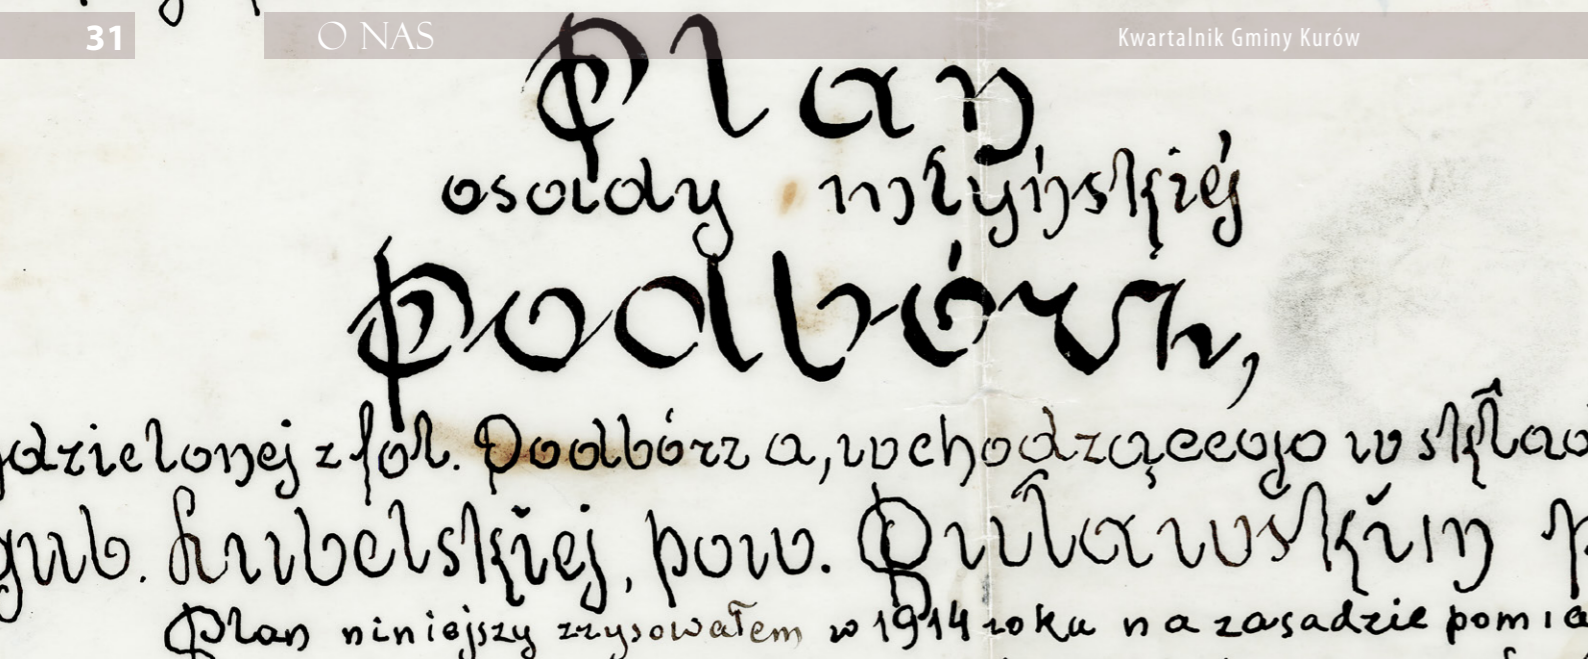 31 O NAS Kwartalnik Gminy Kurów
Plan
osady młyńskiéj
Podbórz,
dzielonej z fol. Podbórza, wchodzącego w skład
gub. Lubelskiej, pow. Puławskim
Plan niniejszy zrysowałem w 1914 roku na zasadzie pomia